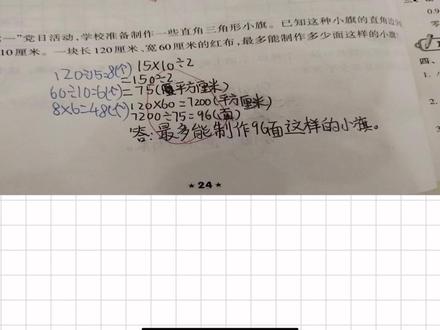 一”党日活动,学校准备制作一些直角三角形小旗。已知这种小旗的直角边
10厘米。一块长120厘米、宽60厘米的红布,最多能制作多少面这样的小旗
120÷15=8(个)
60÷10=6(个)
8×6=48(个)
15×10÷2
=150÷2
=75(平方厘米)
120×60=7200(平方厘米)
7200÷75=96(面)
答:最多能制作96面这样的小旗。
★24★
0.9
零
四、